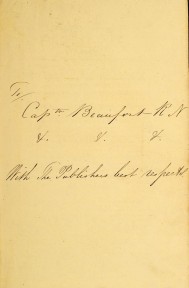 To
Captn Beaufort R N
&. &. &.
With The Publishers best respects